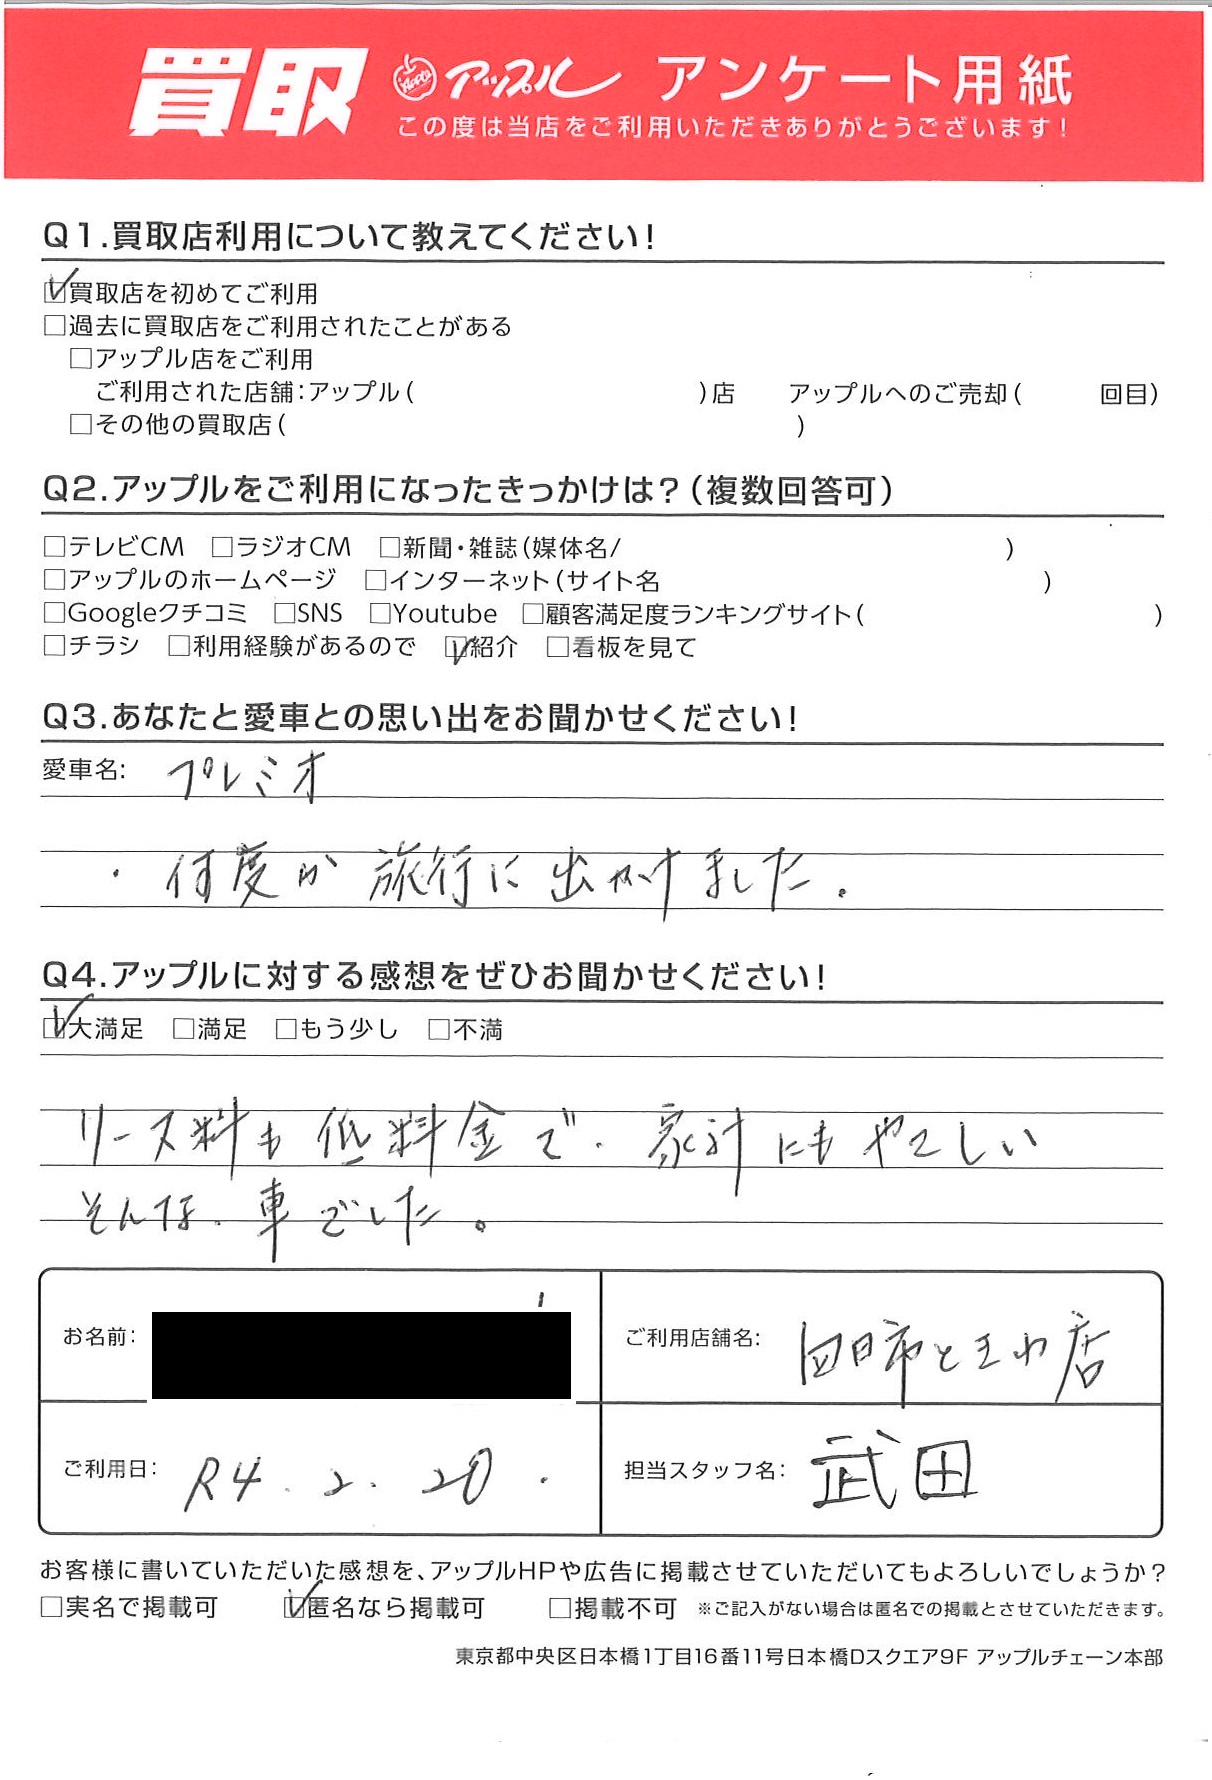 買取 アップル アンケート用紙
この度は当店をご利用いただきありがとうございます！
Q1.買取店利用について教えてください！
☑買取店を初めてご利用
□過去に買取店をご利用されたことがある
□アップル店をご利用
ご利用された店舗：アップル（　　　）店　アップルへのご売却（　　　回目）
□その他の買取店（　　　）
Q2.アップルをご利用になったきっかけは？（複数回答可）
□テレビCM □ラジオCM □新聞・雑誌（媒体名/　　　）
□アップルのホームページ □インターネット（サイト名　　　）
□Googleクチコミ □SNS □Youtube □顧客満足度ランキングサイト（　　　）
□チラシ □利用経験があるので ☑紹介 □看板を見て
Q3.あなたと愛車との思い出をお聞かせください！
愛車名: プレミオ
・何度か旅行に出かけました。
Q4.アップルに対する感想をぜひお聞かせください！
☑大満足 □満足 □もう少し □不満
リース料も低料金で、家計にもやさしい
そんな、車でした。
お名前:
ご利用店舗名: 四日市ときわ店
ご利用日: R4.2.20.
担当スタッフ名: 武田
お客様に書いていただいた感想を、アップルHPや広告に掲載させていただいてもよろしいでしょうか？
□実名で掲載可 ☑匿名なら掲載可 □掲載不可 ※ご記入がない場合は匿名での掲載とさせていただきます。
東京都中央区日本橋1丁目16番11号日本橋Dスクエア9F アップルチェーン本部